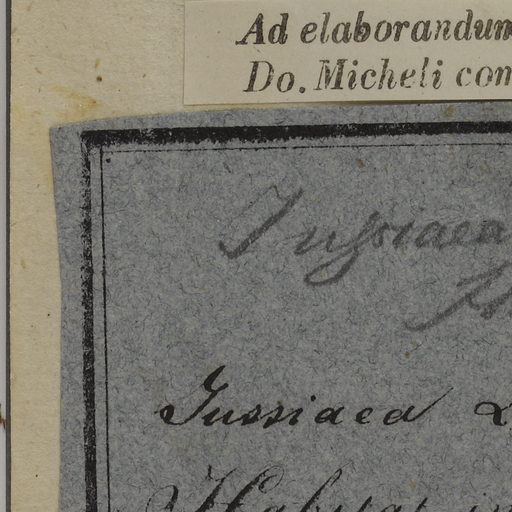 Ad elaborandum
Do. Micheli com
Jussiaea
Jussiaea
Habitat in